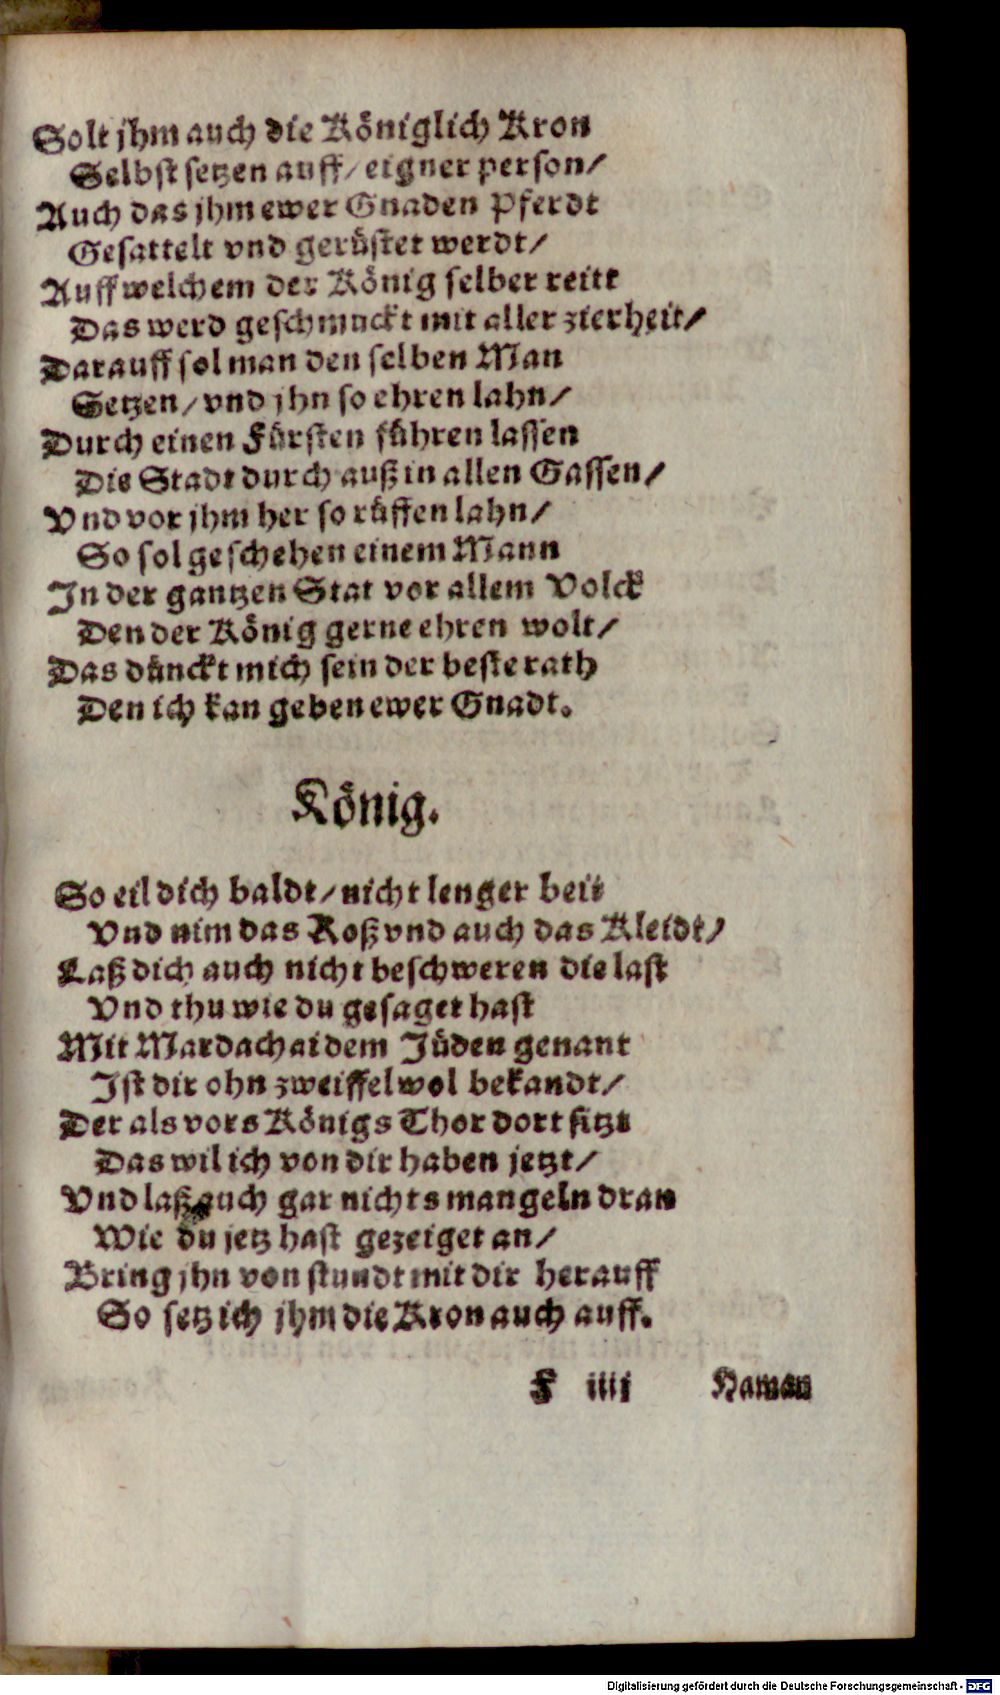 Solt jhm auch die Königlich Kron
Selbst setzen auff/ eigner person/
Auch das jhm ewer Gnaden Pferdt
Gesattelt vnd gerüstet werdt/
Auff welchem der König selber reitt
Das werd geschmuckt mit aller zierheit/
Darauff sol man den selben Man
Setzen/ vnd jhn so ehren lahn/
Durch einen Fürsten führen lassen
Die Stadt durch auß in allen Gassen/
Vnd vor jhm her so rüffen lahn/
So sol geschehen einem Mann
In der gantzen Stat vor allem Volck
Den der König gerne ehren wolt/
Das dünckt mich sein der beste rath
Den ich kan geben ewer Gnadt.
König.
So eil dich baldt/ nicht lenger beit
Vnd nim das Roß vnd auch das Kleidt/
Laß dich auch nicht beschweren die last
Vnd thu wie du gesaget hast
Mit Mardachai dem Jüden genant
Ist dir ohn zweiffel wol bekandt/
Der als vors Königs Thor dort sitzt
Das wil ich von dir haben jetzt/
Vnd laß auch gar nichts mangeln dran
Wie du jetz hast gezeiget an/
Bring jhn von stundt mit dir herauff
So setz ich jhm die Kron auch auff.
F iiij Haman
Digitalisierung gefördert durch die Deutsche Forschungsgemeinschaft - DFG